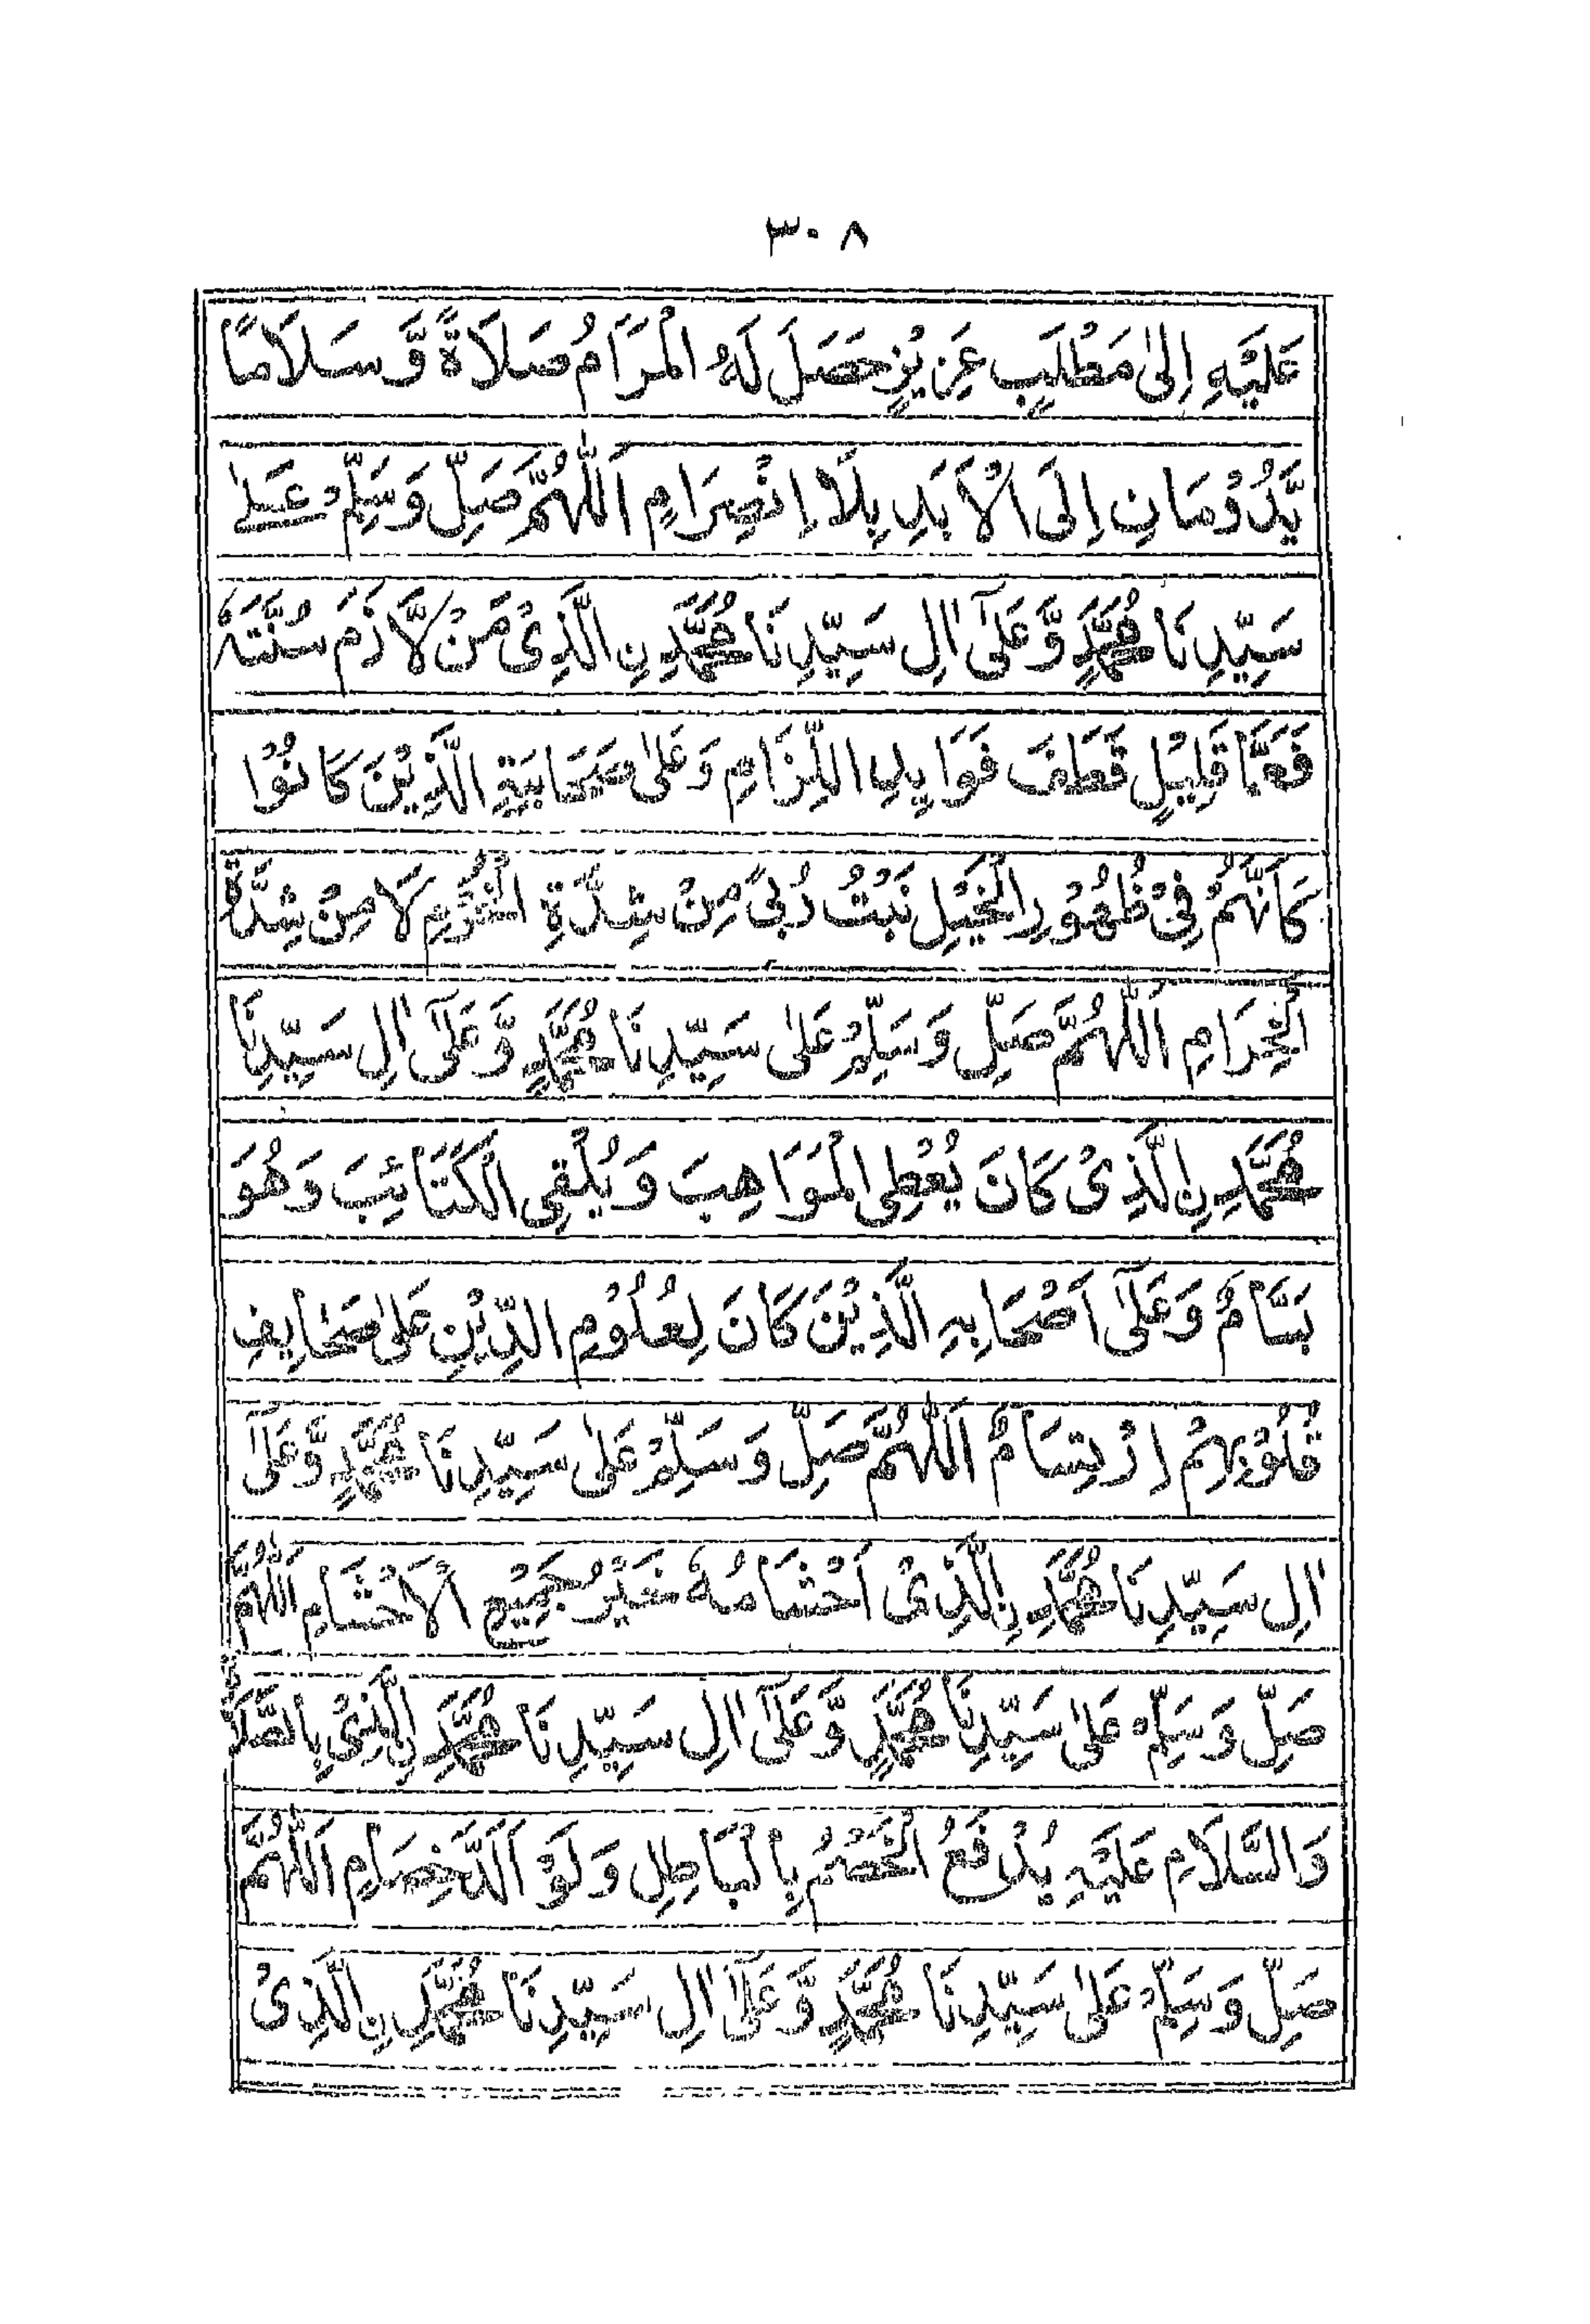 ٣٠٨
عَلَيْهِ اِلٰى مَطْلَبٍ عَزِيْزٍ حَصَلَ لَهُ الْمَرَامُ صَلَاةً وَّ سَلَامًا
يَّدُوْمَانِ اِلَى الْاَبَدِ بِلَا اِنْصِرَامٍ اَللّٰهُمَّ صَلِّ وَسَلِّمْ عَلٰى
سَيِّدِنَا مُحَمَّدٍ وَّعَلٰٓى اٰلِ سَيِّدِنَا مُحَمَّدِ نِ الَّذِىْ مَنْ لَّازَمَ سُنَّتَهٗ
فَعَمَّا قَلِيْلٍ قَطَفَ فَوَايِدِ اللِّزَامِ وَعَلٰى صَحَابَيَةِ الَّذِيْنَ كَانُوْا
كَاَنَّهُمْ فِىْ ظُهُوْرِ الْخَيْلِ نَبْتُ رُبًى مِنْ شِدَّةِ الْحُزُمِ لَا مِنْ شِدَّةِ
الْحِزَامِ اَللّٰهُمَّ صَلِّ وَسَلِّمْ عَلٰى سَيِّدِنَا مُحَمَّدٍ وَّعَلٰٓى اٰلِ سَيِّدِنَا
مُحَمَّدِ نِ الَّذِىْ كَانَ يُعْطِى الْمَوَاهِبَ وَيُلْقِى الْكَتَائِبَ وَهُوَ
بَسَّامٌ وَعَلٰٓى اَصْحَابِهِ الَّذِيْنَ كَانَ لِعُلُوْمِ الدِّيْنِ عَلٰى صَحَايِفِ
قُلُوْبِهِمْ اِرْتِسَامٌ اَللّٰهُمَّ صَلِّ وَسَلِّمْ عَلٰى سَيِّدِنَا مُحَمَّدٍ وَّعَلٰٓى
اٰلِ سَيِّدِنَا مُحَمَّدِ نِ الَّذِىْ اَحْشَامُهٗ خَيْرُ جَمِيْعِ الْاَحْشَامِ اَللّٰهُمَّ
صَلِّ وَسَلِّمْ عَلٰى سَيِّدِنَا مُحَمَّدٍ وَّعَلٰٓى اٰلِ سَيِّدِنَا مُحَمَّدِ نِ الَّذِىْ بِالصَّلَاةِ
وَالسَّلَامِ عَلَيْهِ يُدْفَعُ الْخَصْمُ بِالْبَاطِلِ وَلَوْ اَلَدَّ خِصَامِ اَللّٰهُمَّ
صَلِّ وَسَلِّمْ عَلٰى سَيِّدِنَا مُحَمَّدٍ وَّعَلٰٓى اٰلِ سَيِّدِنَا مُحَمَّدِ نِ الَّذِىْ